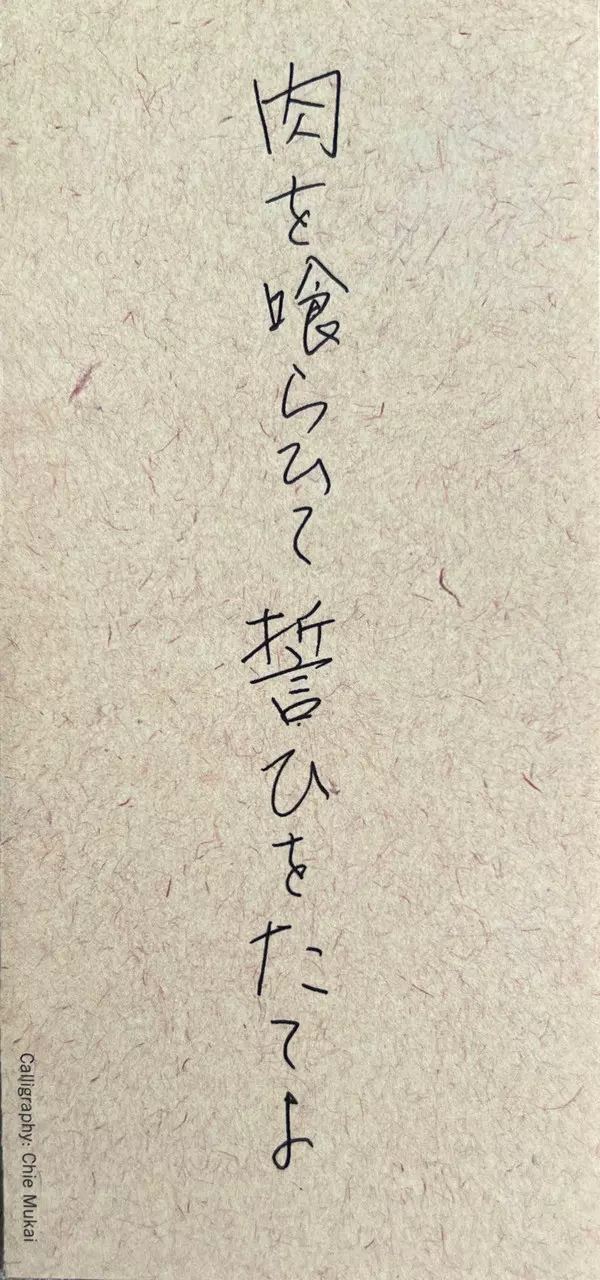 肉を喰らひて 誓ひをたてよ
Calligraphy: Chie Mukai